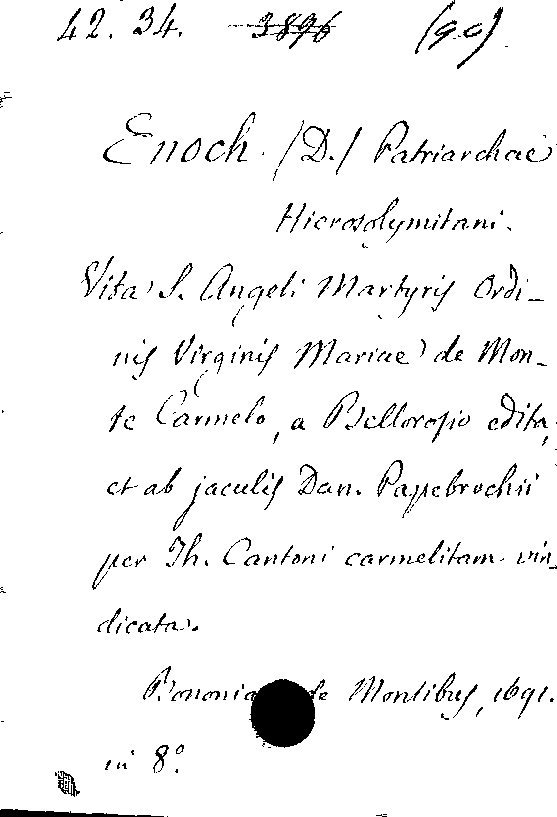 42. 34. 3896 (g.c)
Enoch. /D./ Patriarchae
Hierosolymitani.
Vita S. Angeli Martyris Ordi-
nis Virginis Mariae de Mon-
te Carmelo, a Bellorosio edita,
et ab jaculis Dan. Papebrochii
per Th. Cantoni carmelitam vin-
dicata.
de Montibus, 1691.
in 8º